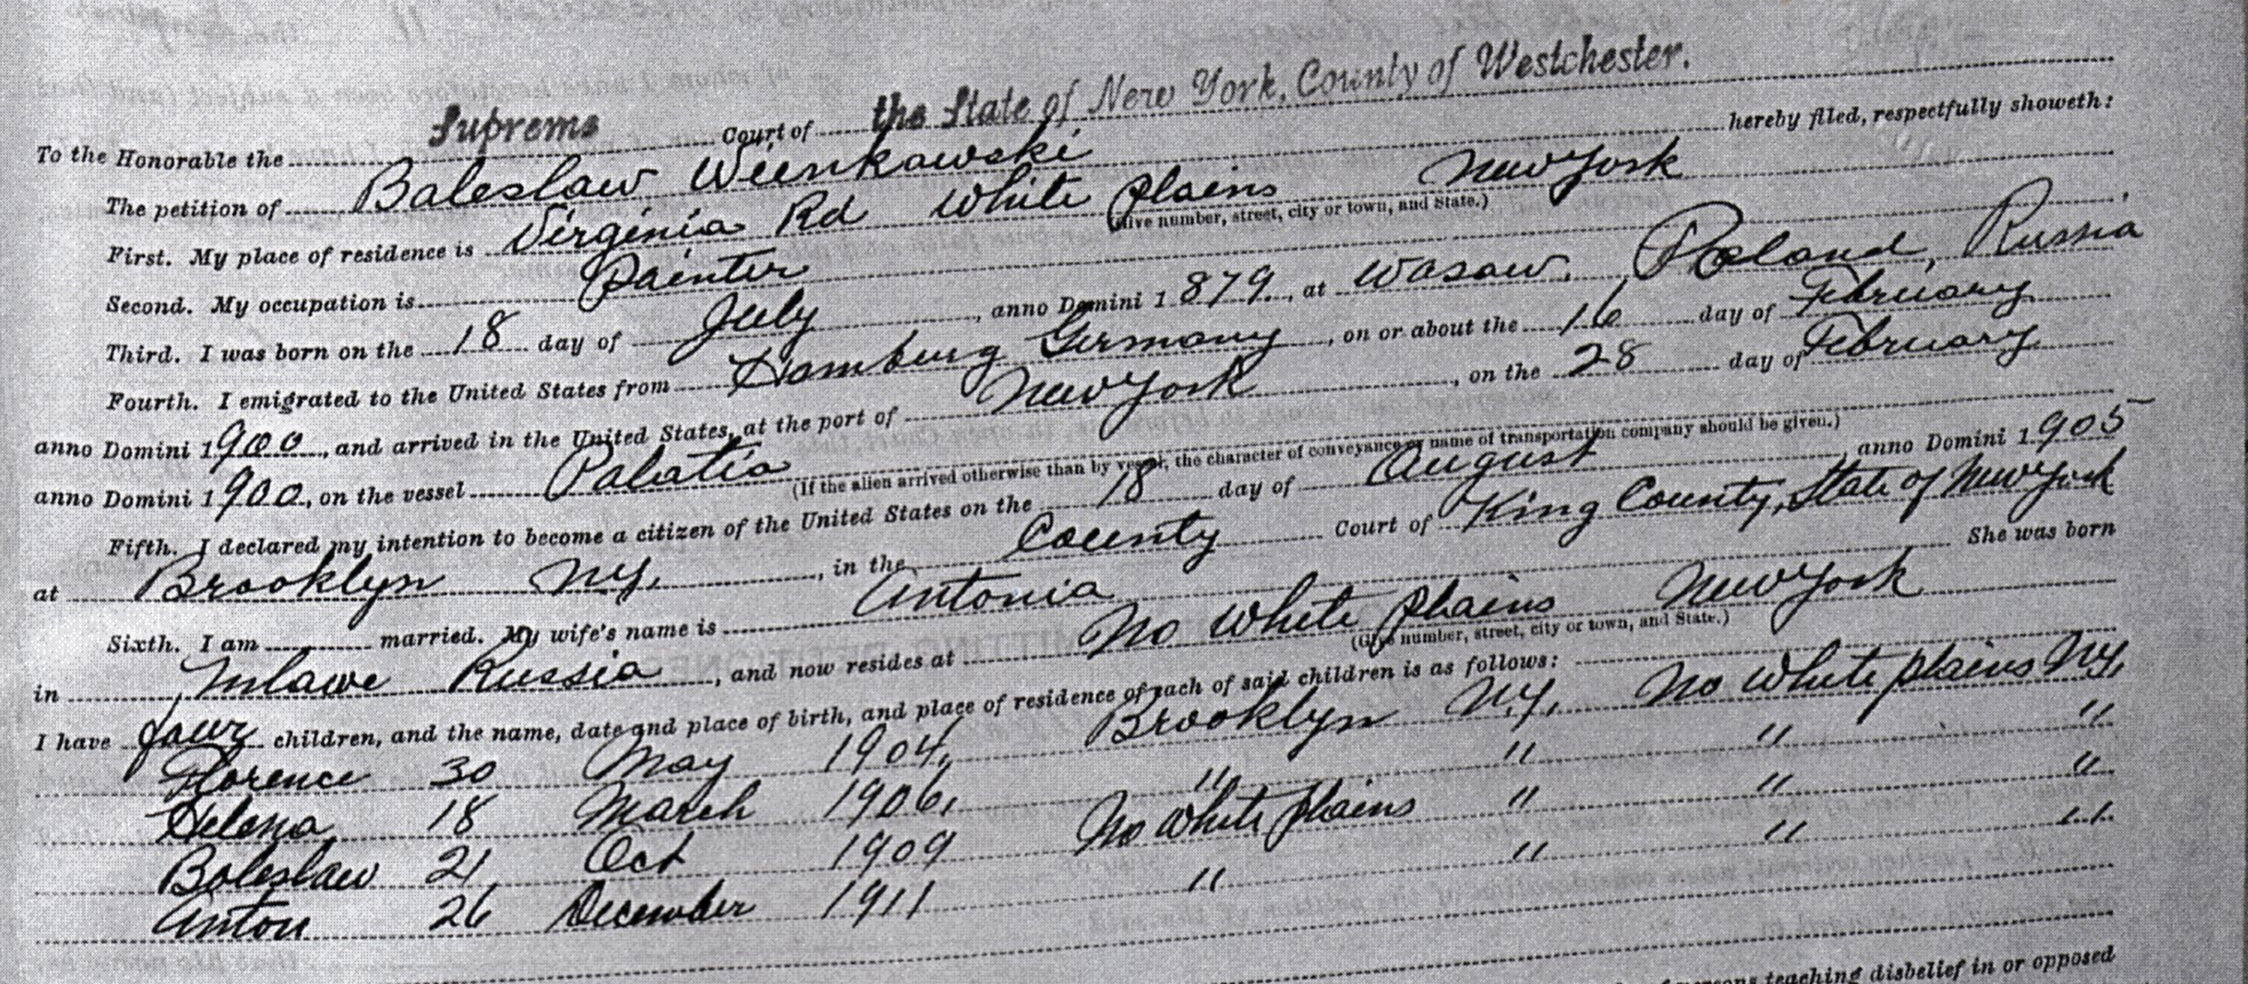 To the Honorable the Supreme Court of the State of New York, County of Westchester.
The petition of Baleslaw Wienkawski hereby filed, respectfully showeth:
First. My place of residence is Virginia Rd White Plains New York
(Give number, street, city or town, and State.)
Second. My occupation is Painter
Third. I was born on the 18 day of July, anno Domini 1879, at Wasaw. Poland, Russia
Fourth. I emigrated to the United States from Hamburg Germany, on or about the 16 day of February
anno Domini 1900, and arrived in the United States, at the port of New York, on the 28 day of February
anno Domini 1900, on the vessel Palatia
(If the alien arrived otherwise than by vessel, the character of conveyance or name of transportation company should be given.)
Fifth. I declared my intention to become a citizen of the United States on the 18 day of August anno Domini 1905
at Brooklyn N.Y., in the County Court of King County, State of New York
Sixth. I am married. My wife's name is Antonia She was born
in Mlawe Russia, and now resides at No White Plains New York
(Give number, street, city or town, and State.)
I have four children, and the name, date and place of birth, and place of residence of each of said children is as follows:
Florence 30 May 1904, Brooklyn N.Y. No White Plains N.Y.
Helena 18 March 1906, " " " "
Boleslaw 21 Oct 1909 No White Plains " " "
Anton 26 December 1911 " " " "
persons teaching disbelief in or opposed